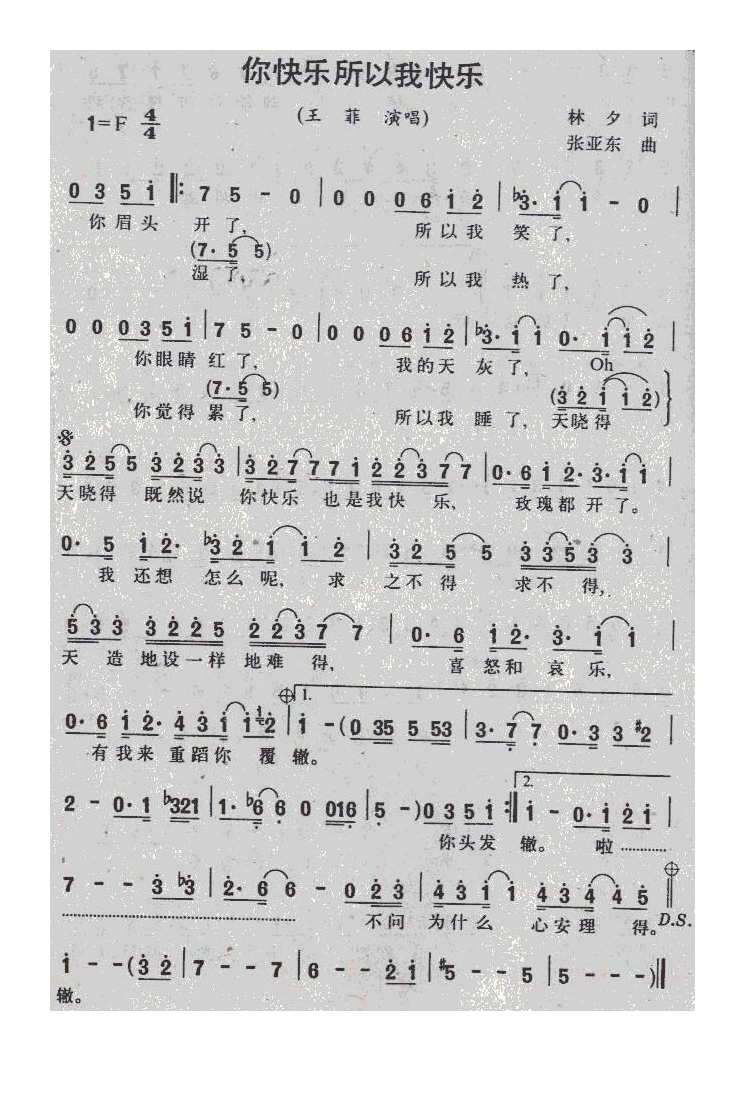 你快乐所以我快乐
1=F 4/4
(王 菲 演唱)
林 夕 词
张亚东 曲
0 3 5 i ‖: 7 5 - 0 | 0 0 0 6 i 2 | ♭3· i i - 0 |
你眉头 开了, 所以我 笑了,
(7· 5 5)
湿了, 所以我 热了,
0 0 0 3 5 i | 7 5 - 0 | 0 0 0 6 i 2 | ♭3· i i 0· i i 2 |
你眼睛 红了, 我的天 灰了, Oh
(7· 5 5) (3 2 i i 2)
你觉得 累了, 所以我 睡了, 天晓得
3 2 5 5 3 2 3 3 | 3 2 7 7 7 i 2 2 3 7 7 | 0· 6 i 2· 3· i i |
天晓得 既然说 你快乐 也是我快 乐, 玫瑰都开了。
0· 5 i 2· ♭3 2 i i 2 | 3 2 5 5 3 3 5 3 3 |
我 还想 怎么呢, 求 之不得 求不得,
5 3 3 3 2 2 5 2 2 3 7 7 | 0· 6 i 2· 3· i i |
天 造 地设一样 地难 得, 喜 怒和 哀乐,
1.
0· 6 i 2· 4 3 i i 2 | i - (0 35 5 53 | 3· 7 7 0· 3 3 #2 |
有我来 重蹈你 覆 辙。
2.
2 - 0· 1 ♭321 | 1· ♭6 6 0 016 | 5 -) 0 3 5 i :‖ i - 0· i 2 i |
你头发 辙。 啦…………
7 - - 3 ♭3 | 2· 6 6 - 0 2 3 | 4 3 i i 4 3 4 4 5 ‖
………………………… 不问 为什么 心安理 得。D.S.
i - - (3 2 | 7 - - 7 | 6 - - 2 i | #5 - - 5 | 5 - - -)‖
辙。